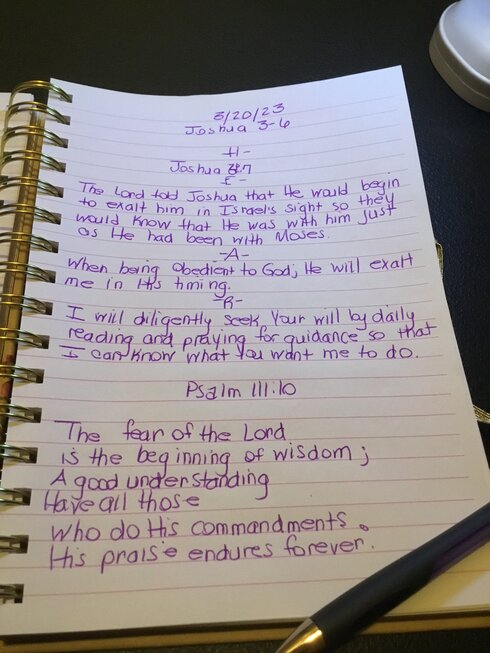 3/20/23
Joshua 3-6
-H-
Joshua 3:7
-E-
The Lord told Joshua that He would begin
to exalt him in Israel's sight so they
would know that He was with him just
as He had been with Moses.
-A-
When being obedient to God, He will exalt
me in His timing.
-R-
I will diligently seek Your will by daily
reading and praying for guidance so that
I can know what You want me to do.
Psalm 111:10
The fear of the Lord
is the beginning of wisdom;
A good understanding
Have all those
who do His commandments.
His praise endures forever.